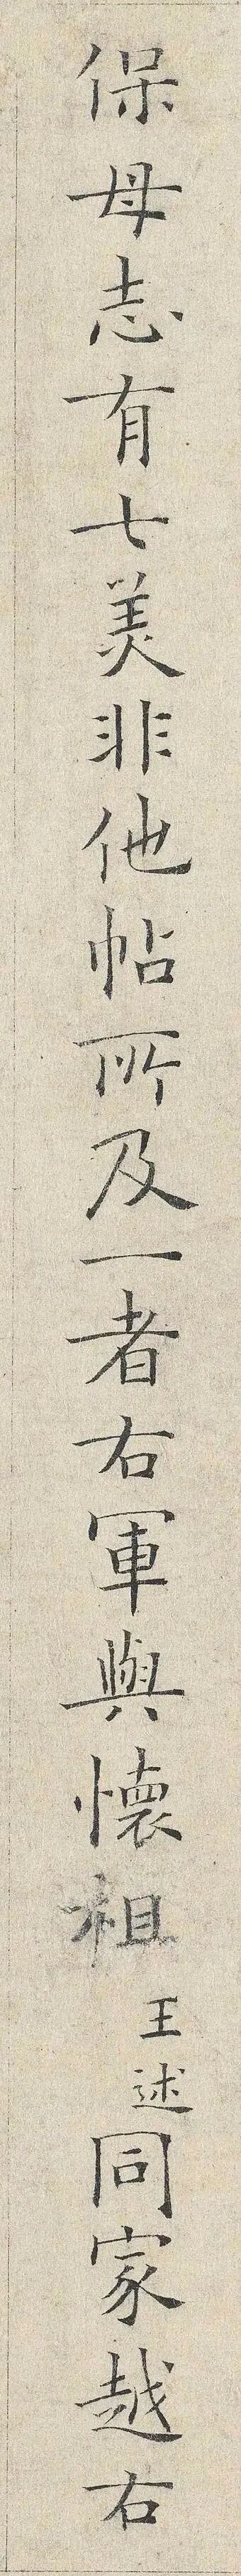 保母志有七美非他帖所及一者右軍與懷祖王述同家越右